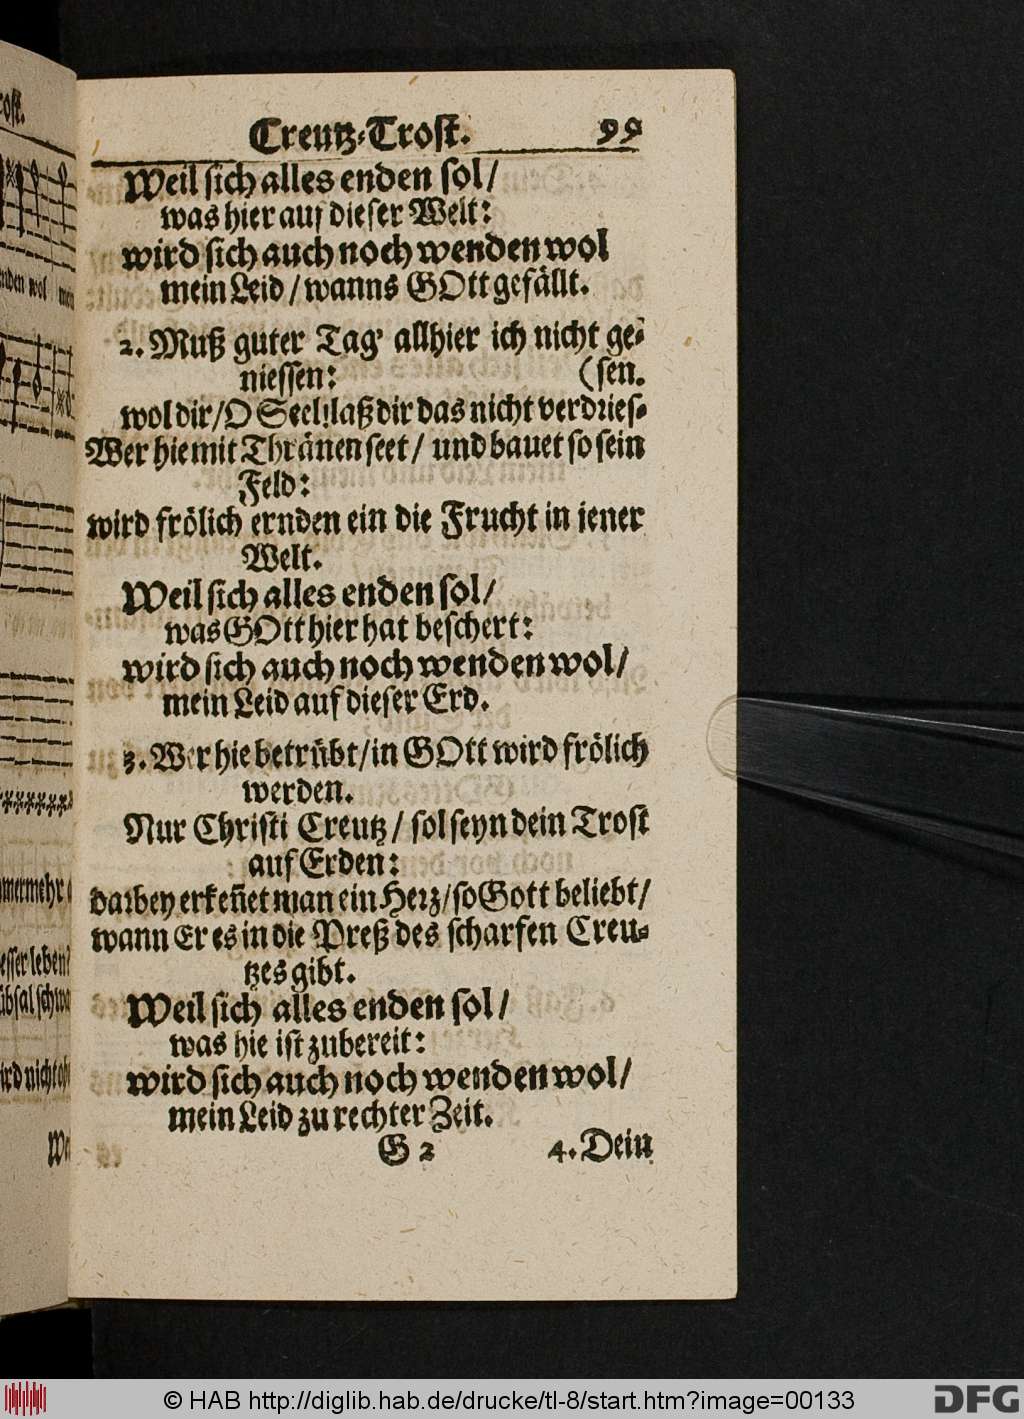 Creutz-Trost. 99
Weil sich alles enden sol/
was hier auf dieser Welt:
wird sich auch noch wenden wol
mein Leid / wanns GOtt gefällt.
2. Muß guter Tag' allhier ich nicht ge-
niessen: (sen.
wol dir/O Seel! laß dir das nicht verdries-
Wer hie mit Thränen seet / und bauet so sein
Feld:
wird frölich ernden ein die Frucht in jener
Welt.
Weil sich alles enden sol/
was GOtt hier hat beschert:
wird sich auch noch wenden wol/
mein Leid auf dieser Erd.
3. Wer hie betrübt/in GOtt wird frölich
werden.
Nur Christi Creutz / sol seyn dein Trost
auf Erden:
darbey erkeñet man ein Herz/so Gott beliebt/
wann Er es in die Preß des scharfen Creu-
tzes gibt.
Weil sich alles enden sol/
was hie ist zubereit:
wird sich auch noch wenden wol/
mein Leid zu rechter Zeit.
G 2 4. Dein
© HAB http://diglib.hab.de/drucke/tl-8/start.htm?image=00133
DFG